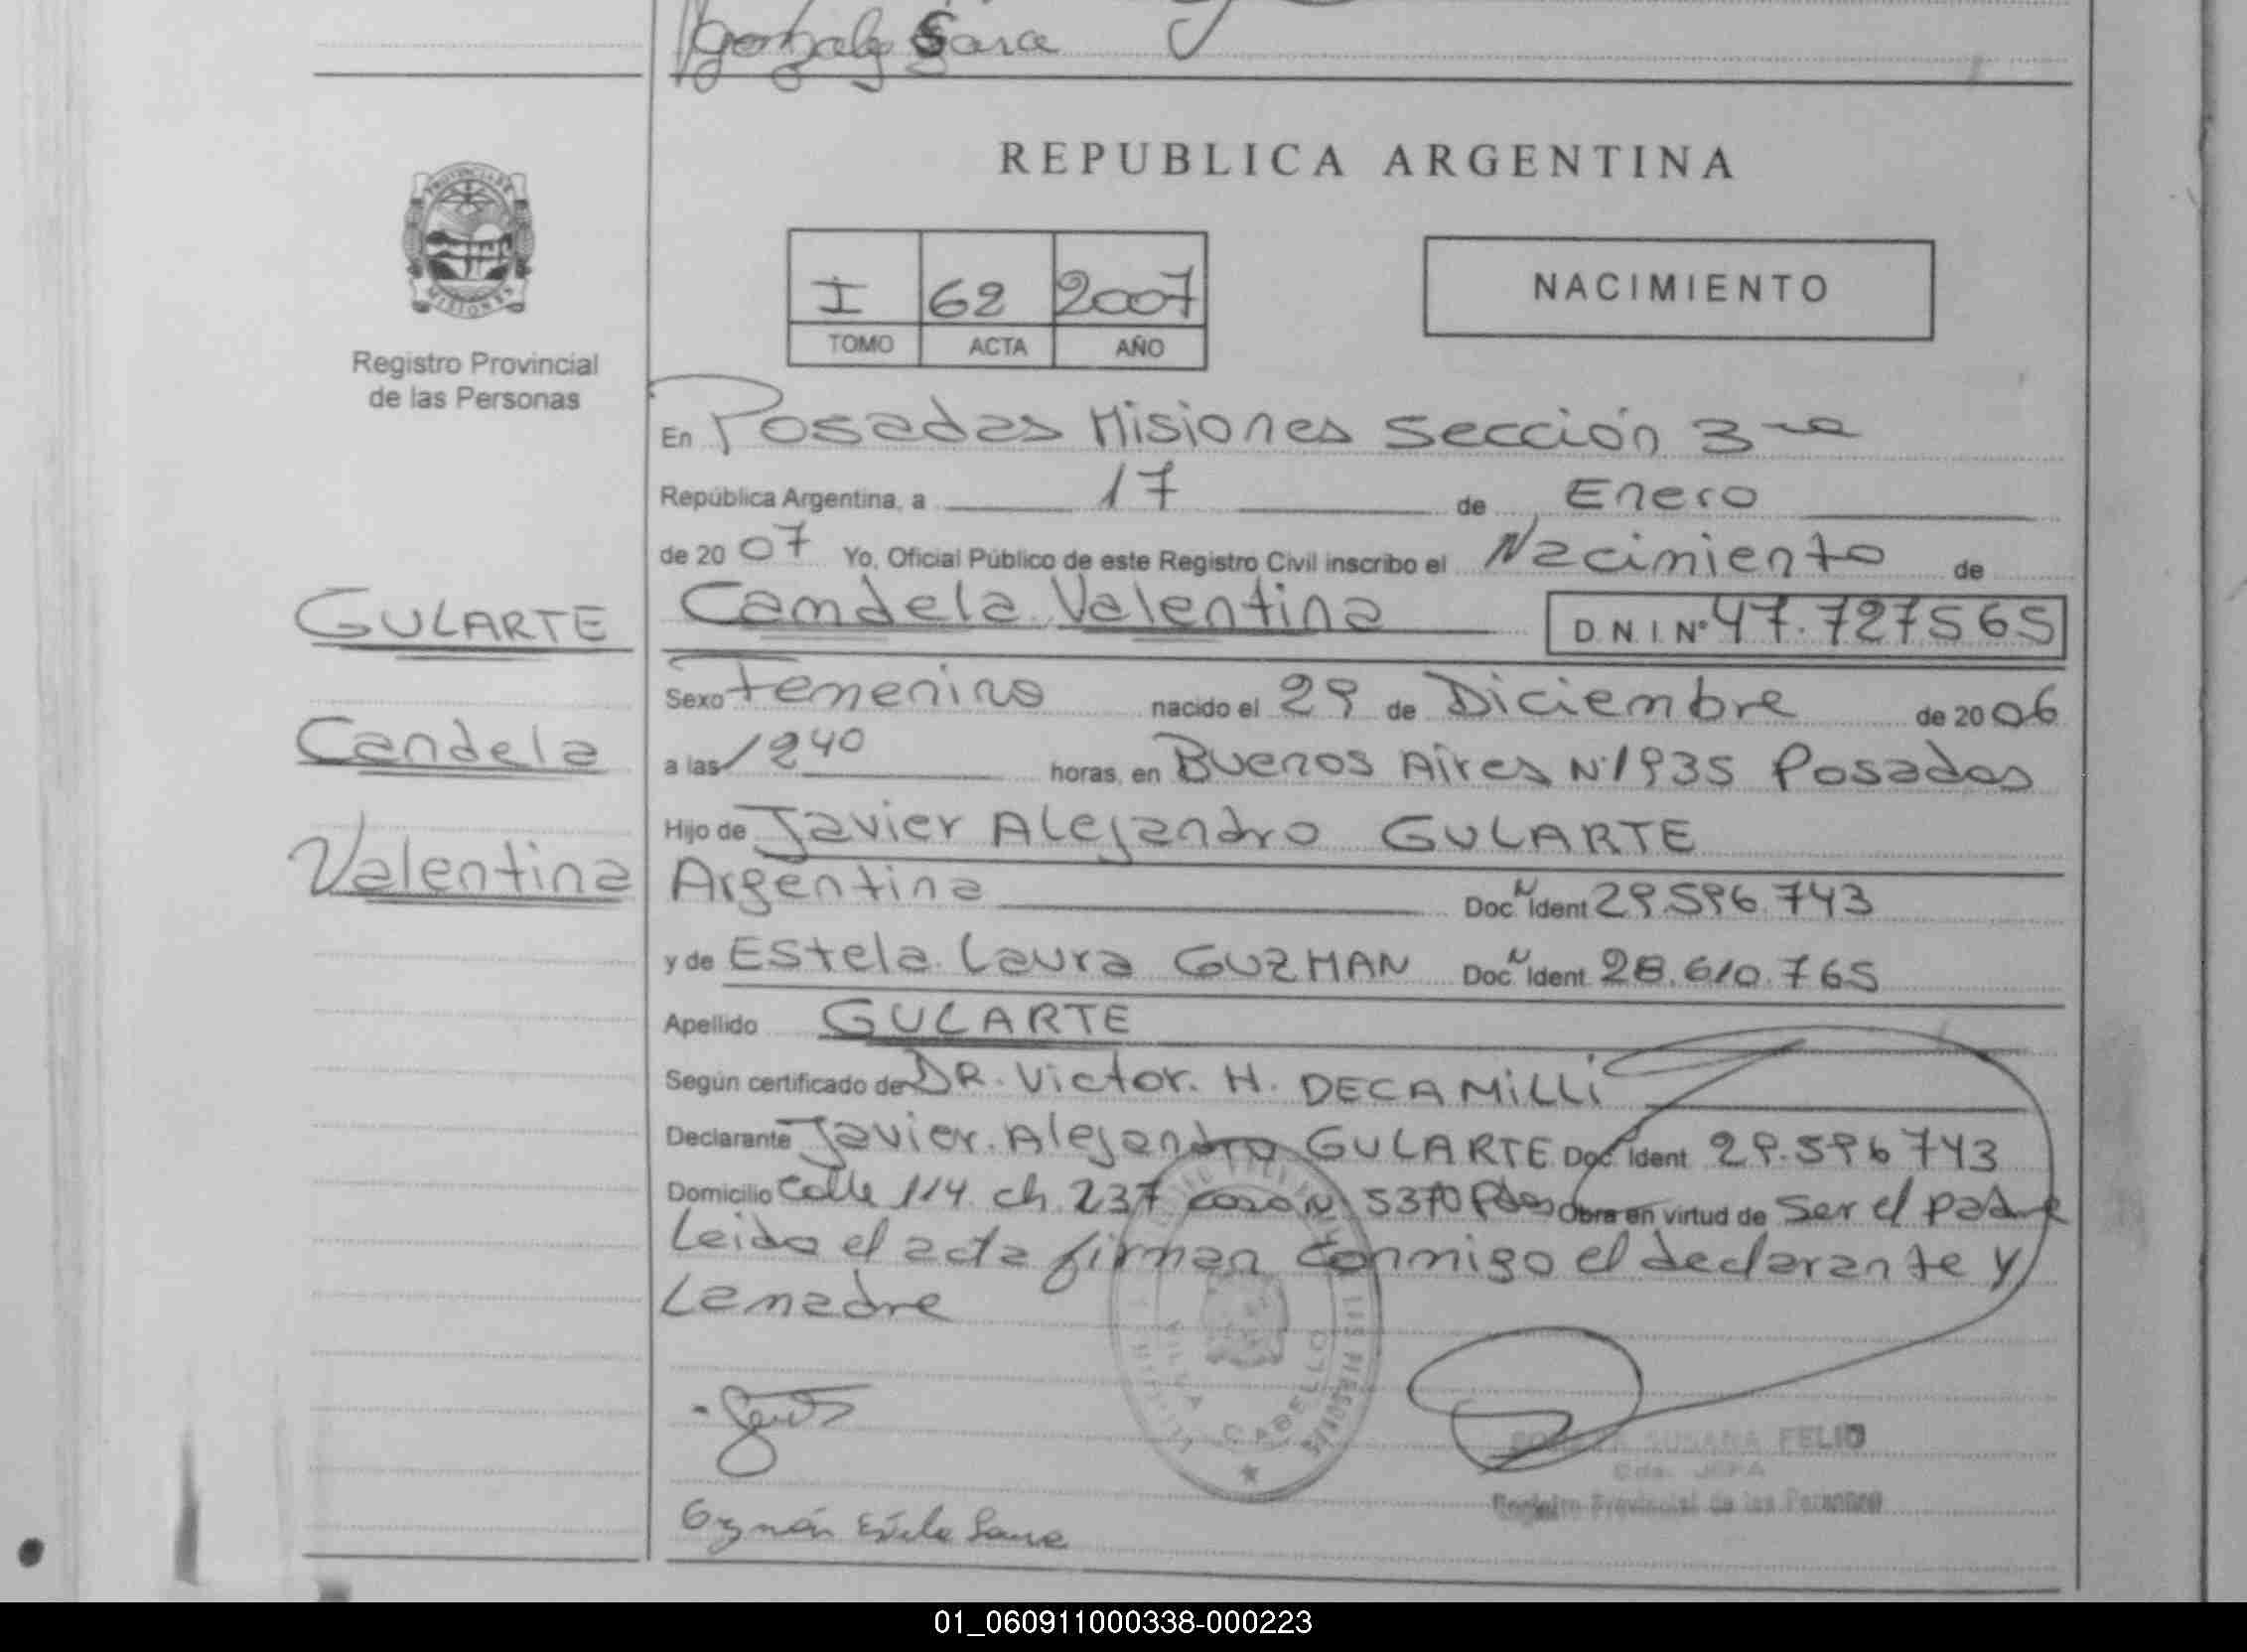 Gonzalez Sara
REPUBLICA ARGENTINA
PROVINCIA DE
MISIONES
Registro Provincial
de las Personas
I 62 2007
TOMO ACTA AÑO
NACIMIENTO
En Posadas Misiones Sección 3ra
República Argentina, a 17 de Enero
de 2007 Yo, Oficial Público de este Registro Civil inscribo el Nacimiento de
GULARTE
Candela
Valentina
Candela Valentina D.N.I. Nº 47.727565
Sexo Femenino nacido el 29 de Diciembre de 2006
a las 1240 horas, en Buenos Aires Nº 1935 Posadas
Hijo de Javier Alejandro GULARTE
Argentina Doc. N Ident 29.596.743
y de Estela Laura GUZMAN Doc. N Ident. 28.610.765
Apellido GULARTE
Según certificado de DR. Victor. H. DECAMiLLi
Declarante Javier. Alejandro GULARTE Doc. Ident 29.596743
Domicilio Calle 114. ch. 237 casa N 5370 Pdas Obra en virtud de Ser el padre
Leida el acta firman conmigo el declarante y
La madre
VILLA CABELLO
SUSANA FELIU
Cda. JEFA
Registro Provincial de las Personas
Guzmán Estela Laura
01_060911000338-000223